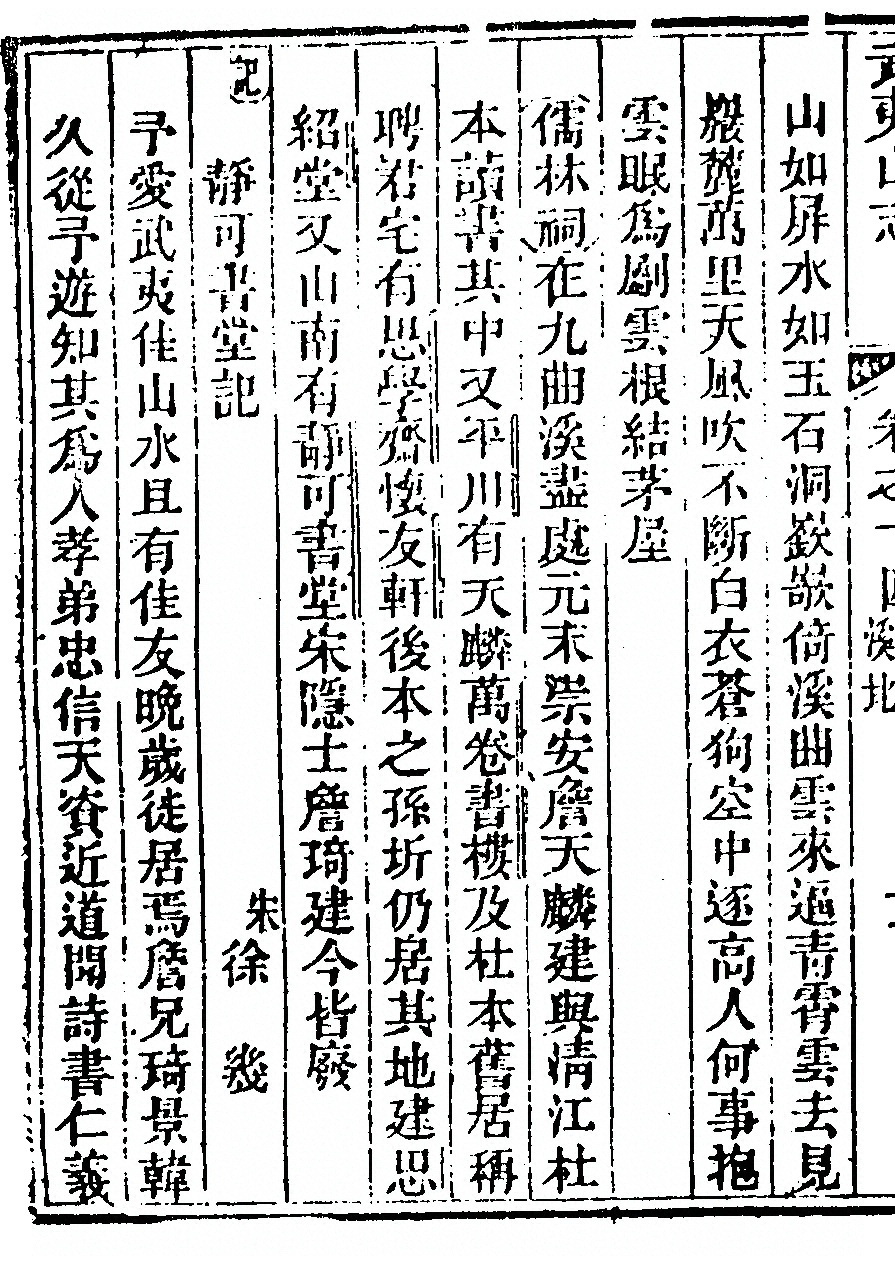 武夷山志
卷之十四溪北
山如屏水如玉石洞嶔嶔倚溪曲雲來遍青霄雲去見
巖麓萬里天風吹不斷白衣蒼狗空中逐高人何事抱
雲眠爲劚雲根結茅屋
儒林祠在九曲溪盡處元末崇安詹天麟建與淸江杜
本讀書其中又平川有天麟萬卷書樓及杜本舊居稱
聘君宅有思學齋懷友軒後本之孫圻仍居其地建思
紹堂又山南有靜可書堂宋隱士詹琦建今皆廢
記 靜可書堂記
朱 徐 幾
予愛武夷佳山水且有佳友晚歲徒居焉詹兄琦景韓
久從予遊知其爲人孝弟忠信天資近道聞詩書仁義